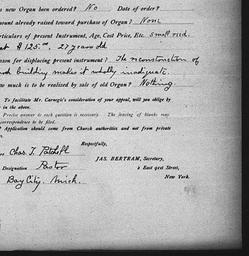 new Organ been ordered? No Date of order?
mount already raised toward purchase of Organ? None
articulars of present Instrument, Age, Cost Price, Etc. small reed.
at $125.00, 27 years old
ason for displacing present instrument? The reconstruction of
building makes it wholly inadequate.
much is to be realized by sale of old Organ? Nothing
To facilitate Mr. Carnegie's consideration of your appeal, will you oblige by
in the above.
Precise answer to each question is necessary. The leaving of blanks may
correspondence to be filed.
Application should come from Church authorities and not from private
Respectfully,
Chas. T.
JAS. BERTRAM, Secretary,
Designation Pastor 2 East 91st Street,
New York.
Bay City, Mich.